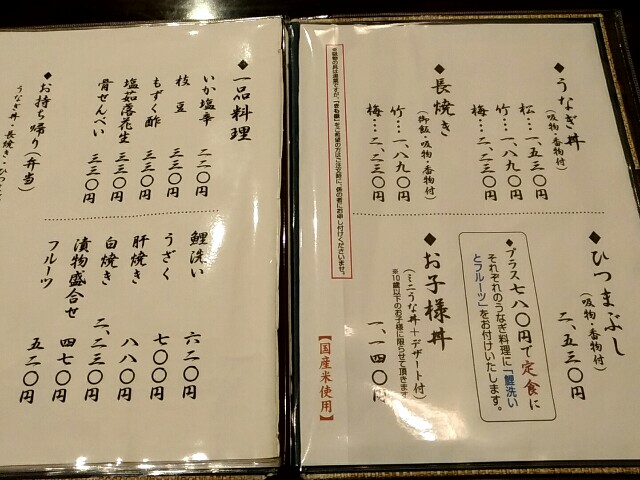 ◆うなぎ丼
(吸物・香物付)
松…一、五三〇円
竹…一、八九〇円
梅…二、二三〇円
◆ひつまぶし
(吸物・香物付)
二、五三〇円
◆プラス七八〇円で定食に
それぞれのうなぎ料理に「鯉洗い
とフルーツ」をお付けいたします。
◆長焼き
(御飯・吸物・香物付)
竹…一、八九〇円
梅…二、二三〇円
◆お子様丼
(ミニうな丼+デザート付)
※10歳以下のお子様に限らせて頂きます
一、一四〇円
【国産米使用】
◆一品料理
いか塩辛 二二〇円
枝豆 三三〇円
もずく酢 三三〇円
塩茹落花生 三三〇円
骨せんべい 三三〇円
鯉洗い 六二〇円
うざく 七〇〇円
肝焼き 八八〇円
白焼き 二、二三〇円
漬物盛合せ 四七〇円
フルーツ 五二〇円
◆お持ち帰り(弁当)
うなぎ丼・長焼き・ひつ